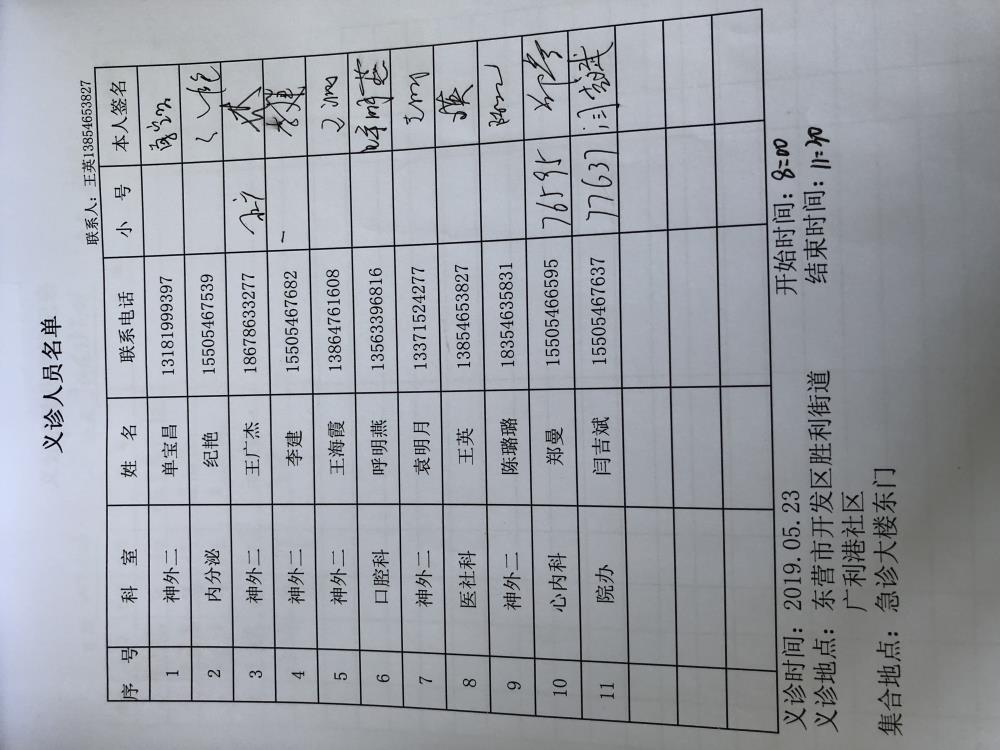 义诊人员名单
联系人：王英13854653827
序 号 科 室 姓 名 联系电话 小 号 本人签名
1 神外二 单宝昌 13181999397
2 内分泌 纪艳 15505467539
3 神外二 王广杰 18678633277
4 神外二 李建 15505467682
5 神外二 王海霞 13864761608
6 口腔科 呼明燕 13563396816 呼明燕
7 神外二 袁明月 13371524277
8 医社科 王英 13854653827
9 神外二 陈璐璐 18354635831
10 心内科 郑曼 15505466595 76595 郑曼
11 院办 闫吉斌 15505467637 77637 闫吉斌
义诊时间：2019.05.23 开始时间：8:00
义诊地点：东营市开发区胜利街道 结束时间：11:30
广利港社区
集合地点：急诊大楼东门